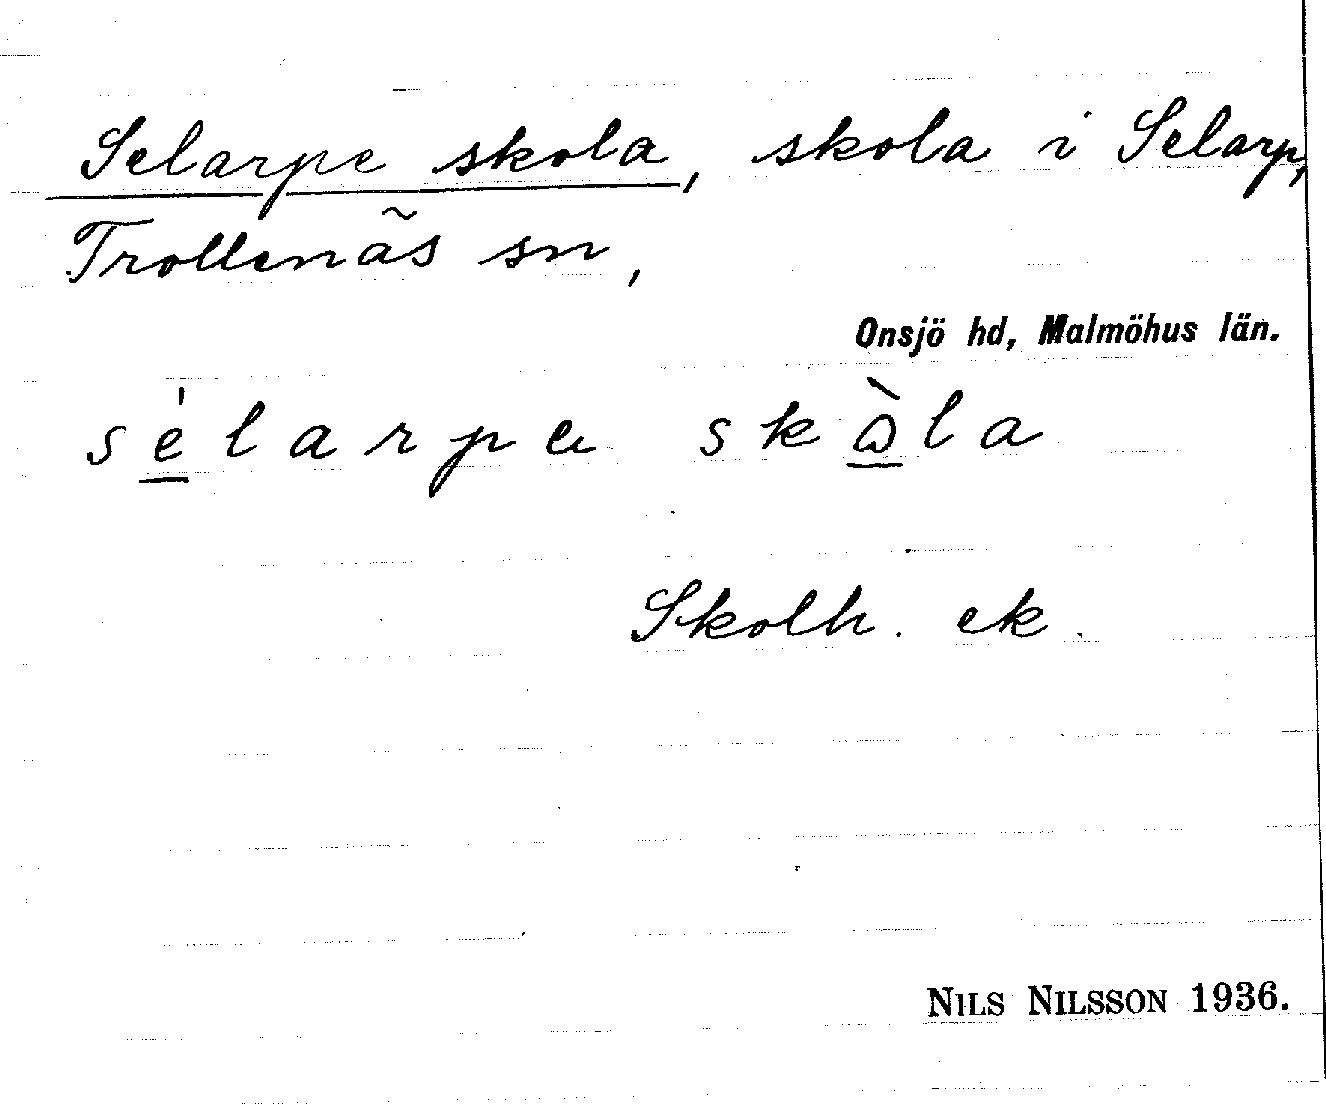 Selarpe skola, skola i Selarp,
Trollenäs sn,
Onsjö hd, Malmöhus län.
sélarpa skòla
Skolh. ek.
NILS NILSSON 1936.